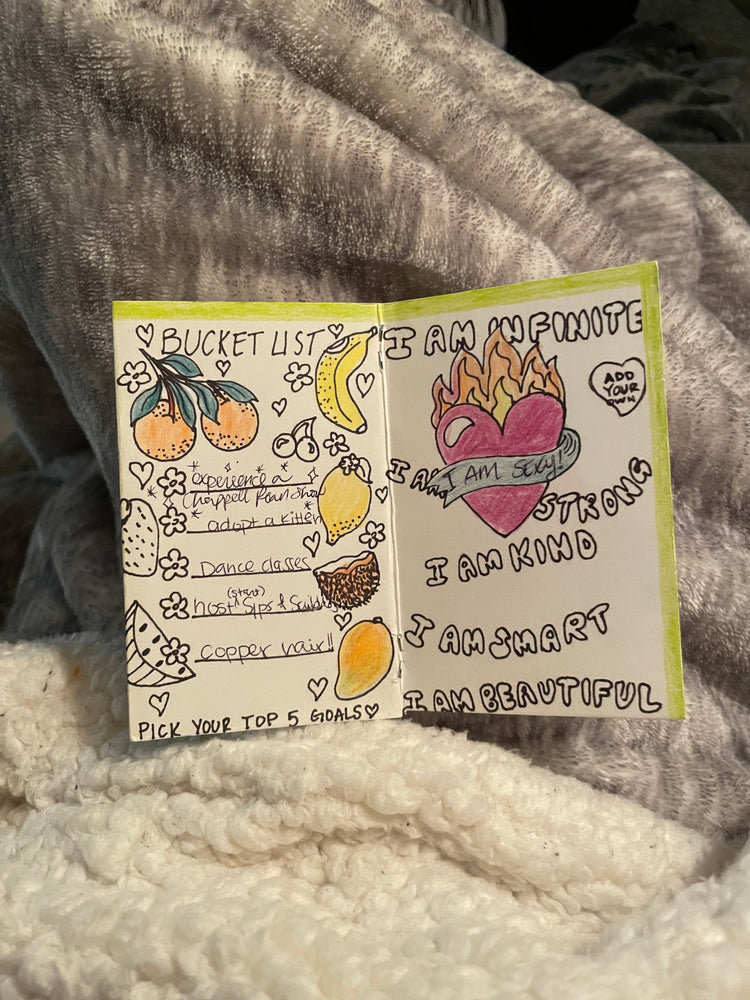 BUCKET LIST
experience a
Chappell Roan Show
adopt a kitten
Dance classes
(start)
host Sips &
copper hair!!
PICK YOUR TOP 5 GOALS
I AM INFINITE
ADD
YOUR
OWN
I AM SEXY!
I AM STRONG
I AM KIND
I AM SMART
I AM BEAUTIFUL